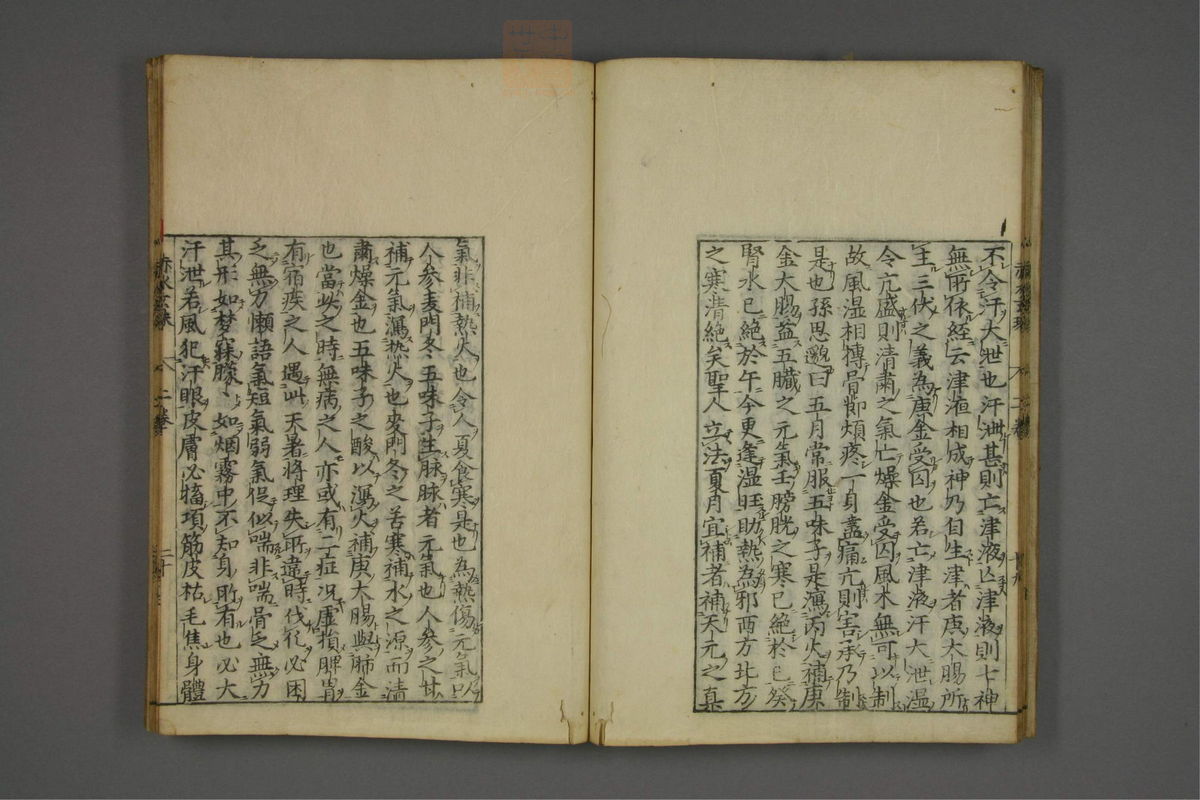 不令汗大泄也汗泄甚則亡津液亡津液則七神
無所依經云津液相成神乃自生津者庚大腸所
主三伏之義為庚金受囚也若亡津液汗大泄濕
令亢盛則清肅之氣亡燥金受囚風木無可以制
故風湿相搏骨節煩疼一身盡痛亢則害承乃制
是也孫思邈曰五月常服五味子是瀉丙火補庚
金大腸益五臓之元氣壬膀胱之寒已絶於巳癸
腎水已絶於午今更逢湿旺助熱為邪西方北方
之寒清絶矣聖人立法夏月宜補者補天元之真
氣非補熱火也令人夏食寒是也為熱傷元氣以
人参麦門冬五味子生脉脉者元氣也人参之甘
補元氣瀉熱火也麦門冬之苦寒補水之源而清
肅燥金也五味子之酸以瀉火補庚大腸與肺金
也當此之時無病之人亦或有二症况虚損脾胃
有宿疾之人遇此天暑将理失所違時伐化必困
乏無力懶語氣短氣弱氣促似喘非喘骨乏無力
其形如梦寐朦〻如烟霧中不知身所有也必大
汗泄若風犯汗眼皮膚必搐項筋皮枯毛焦身體
二卷
二十